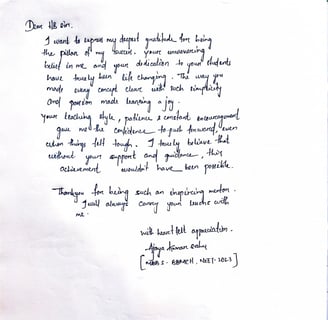 Dear NB sir,
I want to express my deepest gratitude for being
the pillar of my success. your unwavering
belief in me and your dedication to your students
have truely been life changing. The way you
made every concept clear with such simplicity
and passion made learning a joy.
your teaching style, patience & constant encouragement
gave me the confidence to push forward, even
when things felt tough. I truely believe that
without your support and guidance, this
achievement wouldn't have been possible.
Thankyou for being such an inspiring mentor.
I will always carry your lessons with
me.
with heartfelt appreciation.
Ajaya Kumar
BATCH, NEET-2023